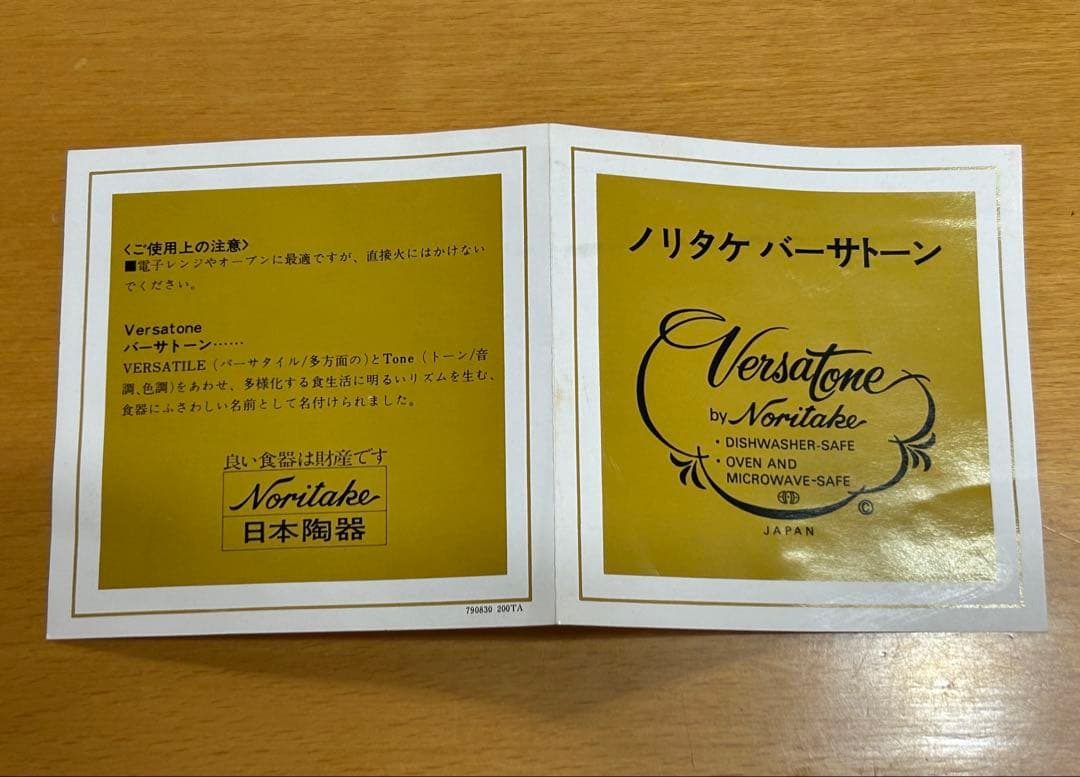 〈ご使用上の注意〉
■電子レンジやオーブンに最適ですが、直接火にはかけない
でください。
Versatone
バーサトーン……
VERSATILE（バーサタイル/多方面の）とTone（トーン/音
調、色調）をあわせ、多様化する食生活に明るいリズムを生む、
食器にふさわしい名前として名付けられました。
良い食器は財産です
Noritake
日本陶器
790830 200TA
ノリタケ バーサトーン
Versatone
by Noritake
・DISHWASHER-SAFE
・OVEN AND
MICROWAVE-SAFE
©
JAPAN